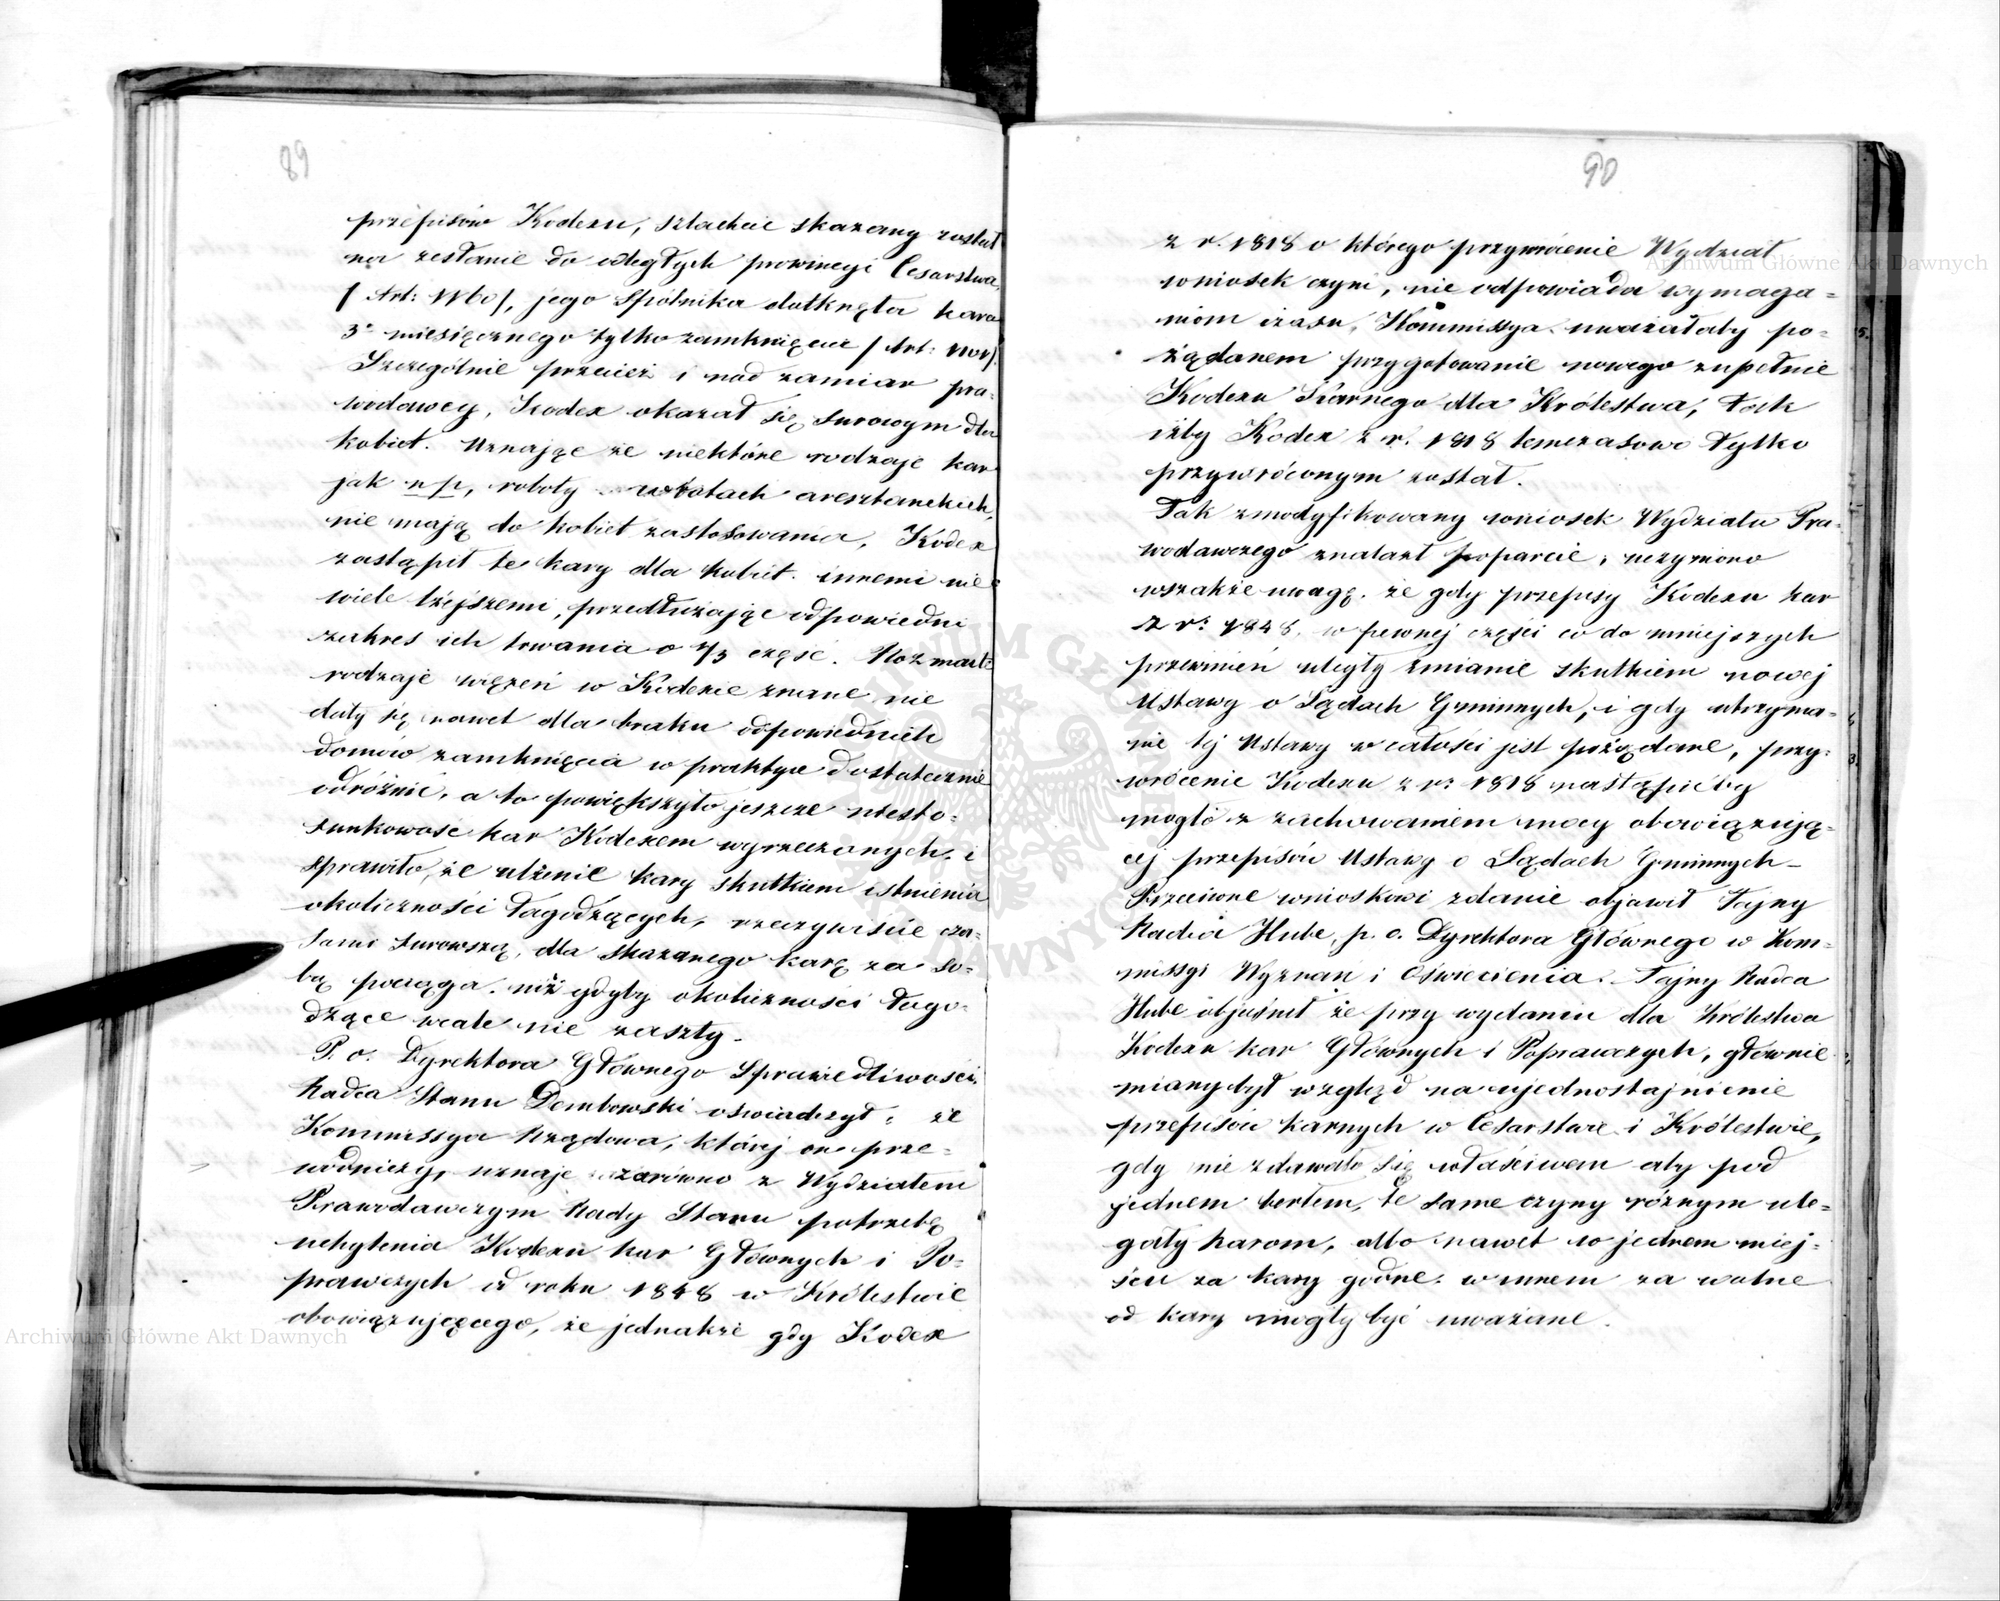 89
przepisów Kodexu, szlachcic skazany został
na zesłanie do odległych prowincyi Cesarstwa,
/ Art: 1160/, jego spólnika dotknęła kara
3 miesięcznego tylko zamknięcia / Art:
Szczególnie przecież i nad zamiar pra-
wodawcy, Kodex okazał się surowym dla
kobiet. Uznając że niektóre rodzaje kar
jak np, roboty w rotach aresztanckich,
nie mają do kobiet zastosowania, Kodex
zastąpił te kary dla kobiet innemi nie
wiele lżejszemi, przedłużając odpowiedni
zakres ich trwania o 1/3 część. Rozmait:
rodzaje więzień w Kodexie znane nie
dały się nawet dla braku odpowiednich
domów zamknięcia w praktyce dostatecznie
odróżnić, a to powiększyło jeszcze niesto-
sunkowość kar Kodexem wyrzeczonych, i
sprawiło, że ulżenie kary skutkiem istnienia
okoliczności łagodzących, rzeczywiście cza-
sami surowszą, dla skazanego karę za so-
bą pociąga, niż gdyby okoliczności łago-
dzące wcale nie zaszły.
P. o. Dyrektora Głównego Sprawiedliwości
Radca Stanu Dembowski oświadczył: że
Kommissya Rządowa, której on prze-
wodniczy, uznaje zarówno z Wydziałem
Prawodawczym Rady Stanu potrzebę
uchylenia Kodexu kar Głównych i Po-
prawczych od roku 1848 w Królestwie
obowiązującego, że jednakże gdy Kodex
90
z r. 1818 o którego przywrócenie Wydział
wniosek czyni, nie odpowiada wymaga-
niom czasu, Kommissya uważałaby po-
żądanem przygotowanie nowego zupełnie
Kodexu Karnego dla Królestwa, tak
iżby Kodex z r. 1818 tymczasowo tylko
przywróconym został.
Tak zmodyfikowany wniosek Wydziału Pra-
wodawczego znalazł poparcie, uczyniono
wszakże uwagę, że gdy przepisy Kodexu kar
z r: 1848, w pewnej części co do mniejszych
przewinień uległy zmianie skutkiem nowej
Ustawy o Sądach Gminnych, i gdy utrzyma-
nie tej Ustawy w całości jest pożądane, przy-
wrócenie Kodexu z r: 1818 nastąpićby
mogło z zachowaniem mocy obowiązują-
cej przepisów Ustawy o Sądach Gminnych
Przeciwne wnioskowi zdanie objawił Tajny
Radca Hube, p. o. Dyrektora Głównego w Kom-
missyi Wyznań i Oświecenia. Tajny Radca
Hube objaśnił że przy wydaniu dla Królestwa
Kodexu kar Głównych i Poprawczych, głównie
miany był wzgląd na ujednostajnienie
przepisów karnych w Cesarstwie i Królestwie,
gdy nie zdawało się właściwem aby pod
jednem berłem, te same czyny różnym ule-
gały karom, albo nawet w jednem miej-
scu za kary godne, w innem za wolne
od kary mogły być uważane.
Archiwum Główne Akt Dawnych
Archiwum Główne Akt Dawnych